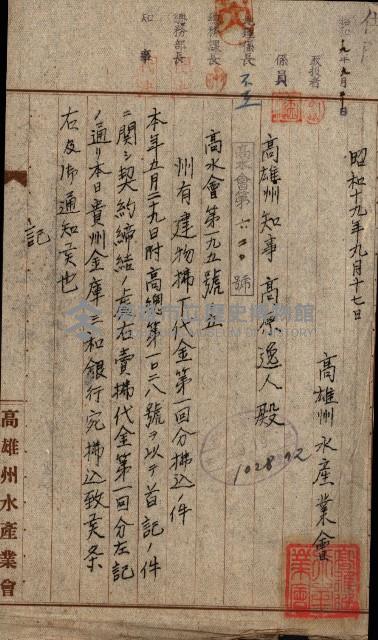 昭和十九年九月十七日
高雄州水産業會
高雄州知事 高原逸人殿
高水會第 六二〇 號
高水會第九五號ノ五
州有建物拂下代金第一回分拂込ノ件
本年五月二十九日附高總第一〇二八號ヲ以テ首記ノ件
ニ関シ契約締結ノ上右賣拂代金第一回分左記
ノ通リ本日貴州金庫三和銀行宛拂込致候条
右及御通知候也
記
高雄州水産業會
取扱者
係員
係長
總務課長
總務部長
知事
1028